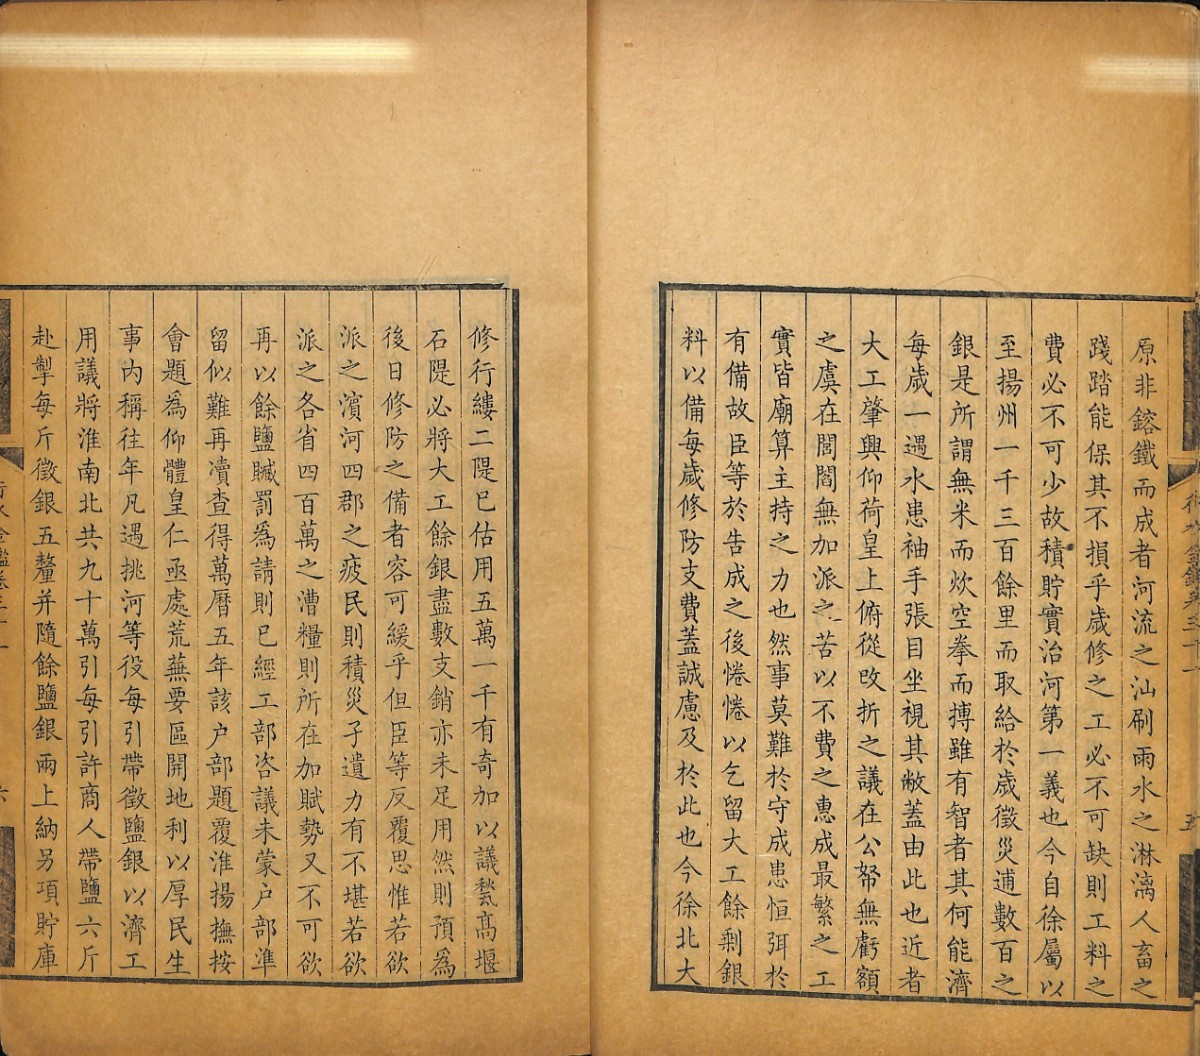 原非鎔鐵而成者河流之汕刷雨水之淋漓人畜之
踐踏能保其不損乎歲修之工必不可缺則工料之
費必不可少故積貯實治河第一義也今自徐屬以
至揚州一千三百餘里而取給於歲徵災逋數百之
銀是所謂無米而炊空拳而搏雖有智者其何能濟
每歲一遇水患袖手張目坐視其敝蓋由此也近者
大工肇興仰荷皇上俯從改折之議在公帑無虧額
之虞在閭閻無加派之苦以不費之惠成最繁之工
實皆廟算主持之力也然事莫難於守成患恒弭於
有備故臣等於告成之後惓惓以乞留大工餘剩銀
料以備每歲修防支費蓋誠慮及於此也今徐北大
修行縷二隄已估用五萬一千有奇加以議甃高堰
石隄必將大工餘銀盡數支銷亦未足用然則預為
後日修防之備者容可緩乎但臣等反覆思惟若欲
派之濱河四郡之疲民則積災孑遺力有不堪若欲
派之各省四百萬之漕糧則所在加賦勢又不可欲
再以餘鹽贓罰為請則已經工部咨議未蒙戶部準
留似難再瀆查得萬曆五年該户部題覆淮揚撫按
會題為仰體皇仁亟處荒蕪要區開地利以厚民生
事內稱往年凡遇挑河等役每引帶徵鹽銀以濟工
用議將淮南北共九十萬引每引許商人帶鹽六斤
赴掣每斤徵銀五釐并隨餘鹽銀兩上納另項貯庫